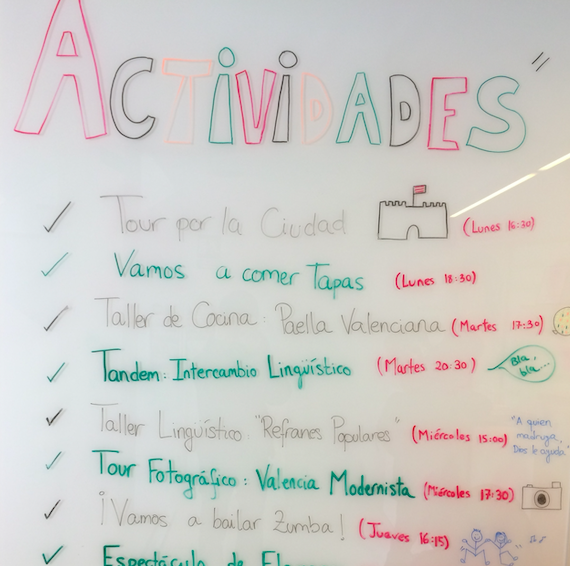 ACTIVIDADES"
Tour por la Ciudad (Lunes 16:30)
Vamos a comer Tapas (Lunes 18:30)
Taller de Cocina: Paella Valenciana (Martes 17:30)
Tandem: Intercambio Lingüístico (Martes 20:30) Bla,
bla...
Taller Lingüístico: "Refranes Populares" (Miércoles 15:00) "A quien
madruga,
Dios le ayuda"
Tour Fotográfico: Valencia Modernista (Miércoles 17:30)
¡Vamos a bailar Zumba! (Jueves 16:15)
Espectáculo de